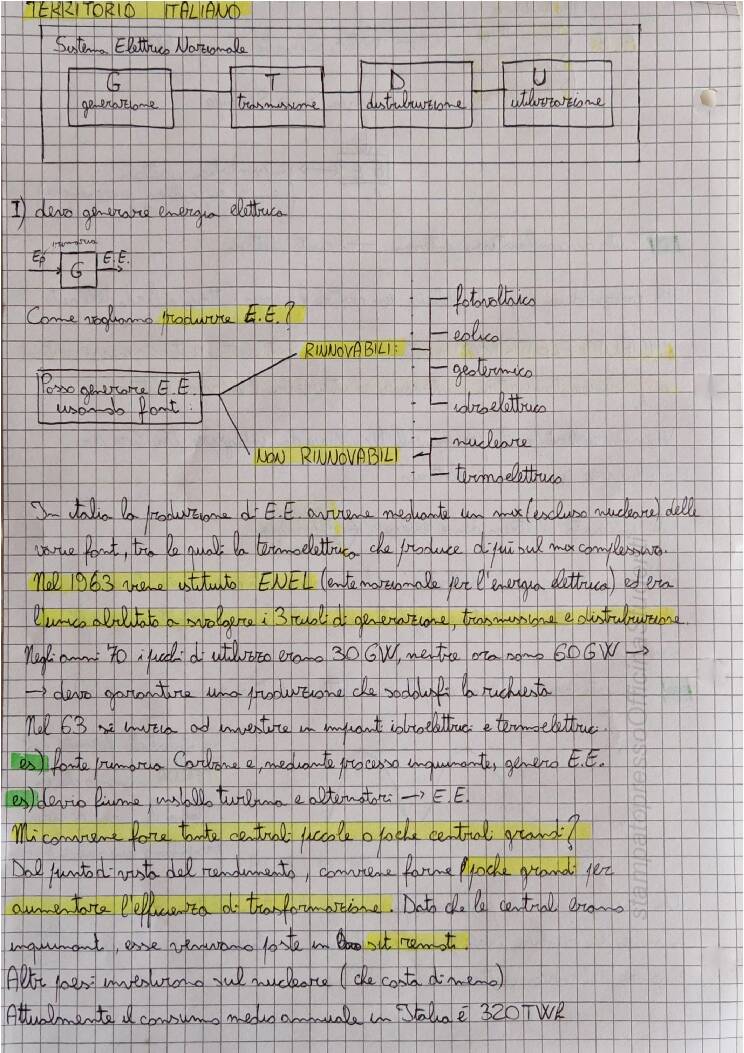 TERRITORIO ITALIANO
Sistema Elettrico Nazionale
G
generazione
T
trasmissione
D
distribuzione
U
utilizzazione
I) devo generare energia elettrica
primaria
Ep
G
E.E.
Come vogliamo produrre E.E.?
Posso generare E.E.
usando fonti:
RINNOVABILI:
fotovoltaico
eolico
geotermico
idroelettrico
NON RINNOVABILI
nucleare
termoelettrico
In italia la produzione di E.E. avviene mediante un mix (escluso nucleare) delle
varie fonti, tra le quali la termoelettrica che produce di più sul mix complessivo.
Nel 1963 viene istituito ENEL (ente nazionale per l'energia elettrica) ed era
l'unico abilitato a svolgere i 3 ruoli di generazione, trasmissione e distribuzione.
Negli anni 70 i picchi di utilizzo erano 30 GW, mentre ora sono 60 GW →
→ devo garantire una produzione che soddisfi la richiesta
Nel 63 si inizia ad investire in impianti idroelettrici e termoelettrici.
es) fonte primaria Carbone e, mediante processo inquinante, genero E.E.
es) devio fiume, installo turbina e alternatori → E.E.
Mi conviene fare tante centrali piccole o poche centrali grandi?
Dal punto di vista del rendimento, conviene farne poche grandi per
aumentare l'efficienza di trasformazione. Dato che le centrali erano
inquinanti, esse venivano poste in siti remoti.
Altri paesi investirono sul nucleare (che costa di meno)
Attualmente il consumo medio annuale in Italia è 320 TWh